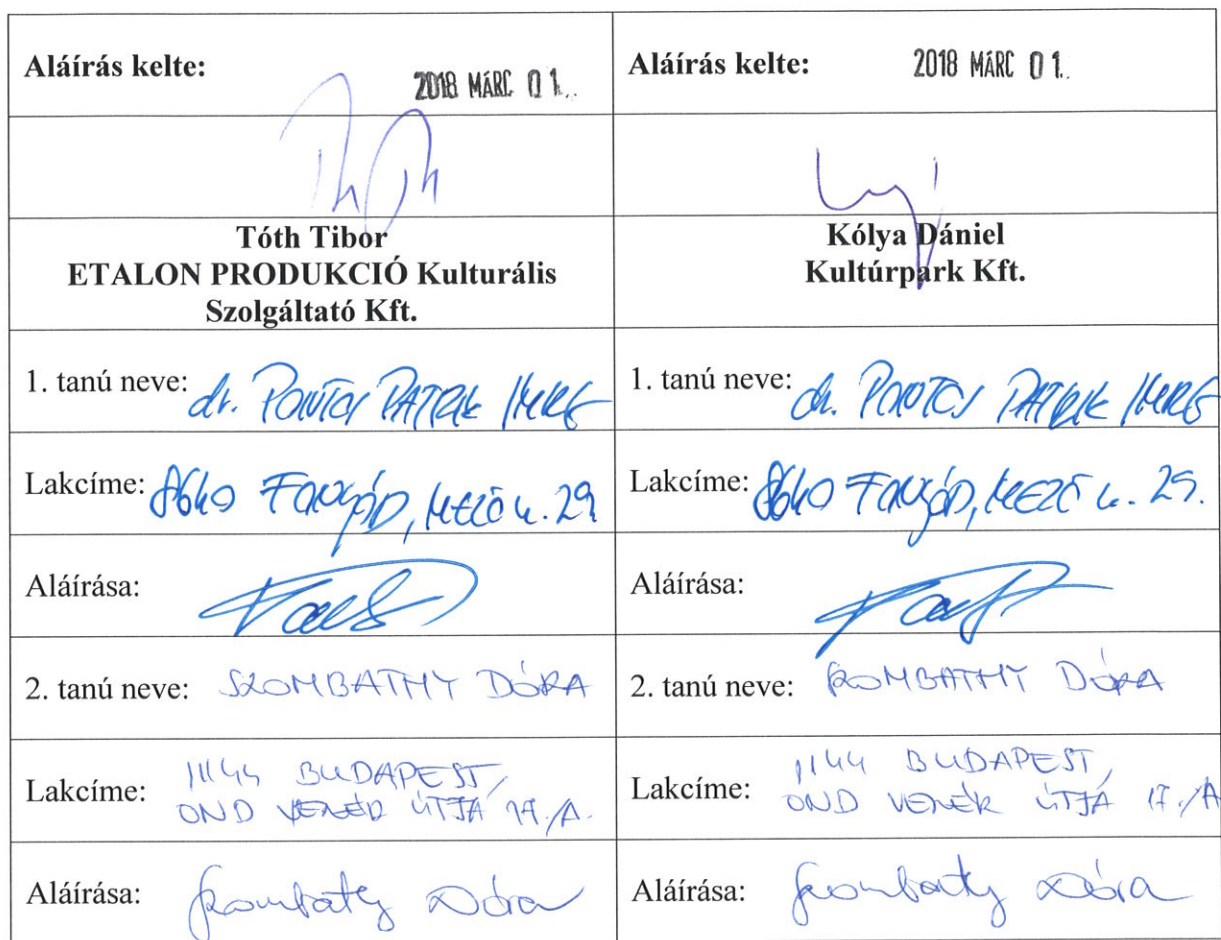 Aláírás kelte: 2018 MÁRC 01.
Aláírás kelte: 2018 MÁRC 01.
Tóth Tibor
ETALON PRODUKCIÓ Kulturális
Szolgáltató Kft.
Kólya Dániel
Kultúrpark Kft.
1. tanú neve: dr. PATRIK IMRE
1. tanú neve: dr. PATRIK IMRE
Lakcíme: 8640 FONYÓD, MEZŐ u. 29.
Lakcíme: 8640 FONYÓD, MEZŐ u. 29.
Aláírása:
Aláírása:
2. tanú neve: SZOMBATHY DÓRA
2. tanú neve: SZOMBATHY DÓRA
Lakcíme: 1144 BUDAPEST,
OND VEZÉR ÚTJA 17./A.
Lakcíme: 1144 BUDAPEST,
OND VEZÉR ÚTJA 17./A
Aláírása: Szombathy Dóra
Aláírása: Szombathy Dóra